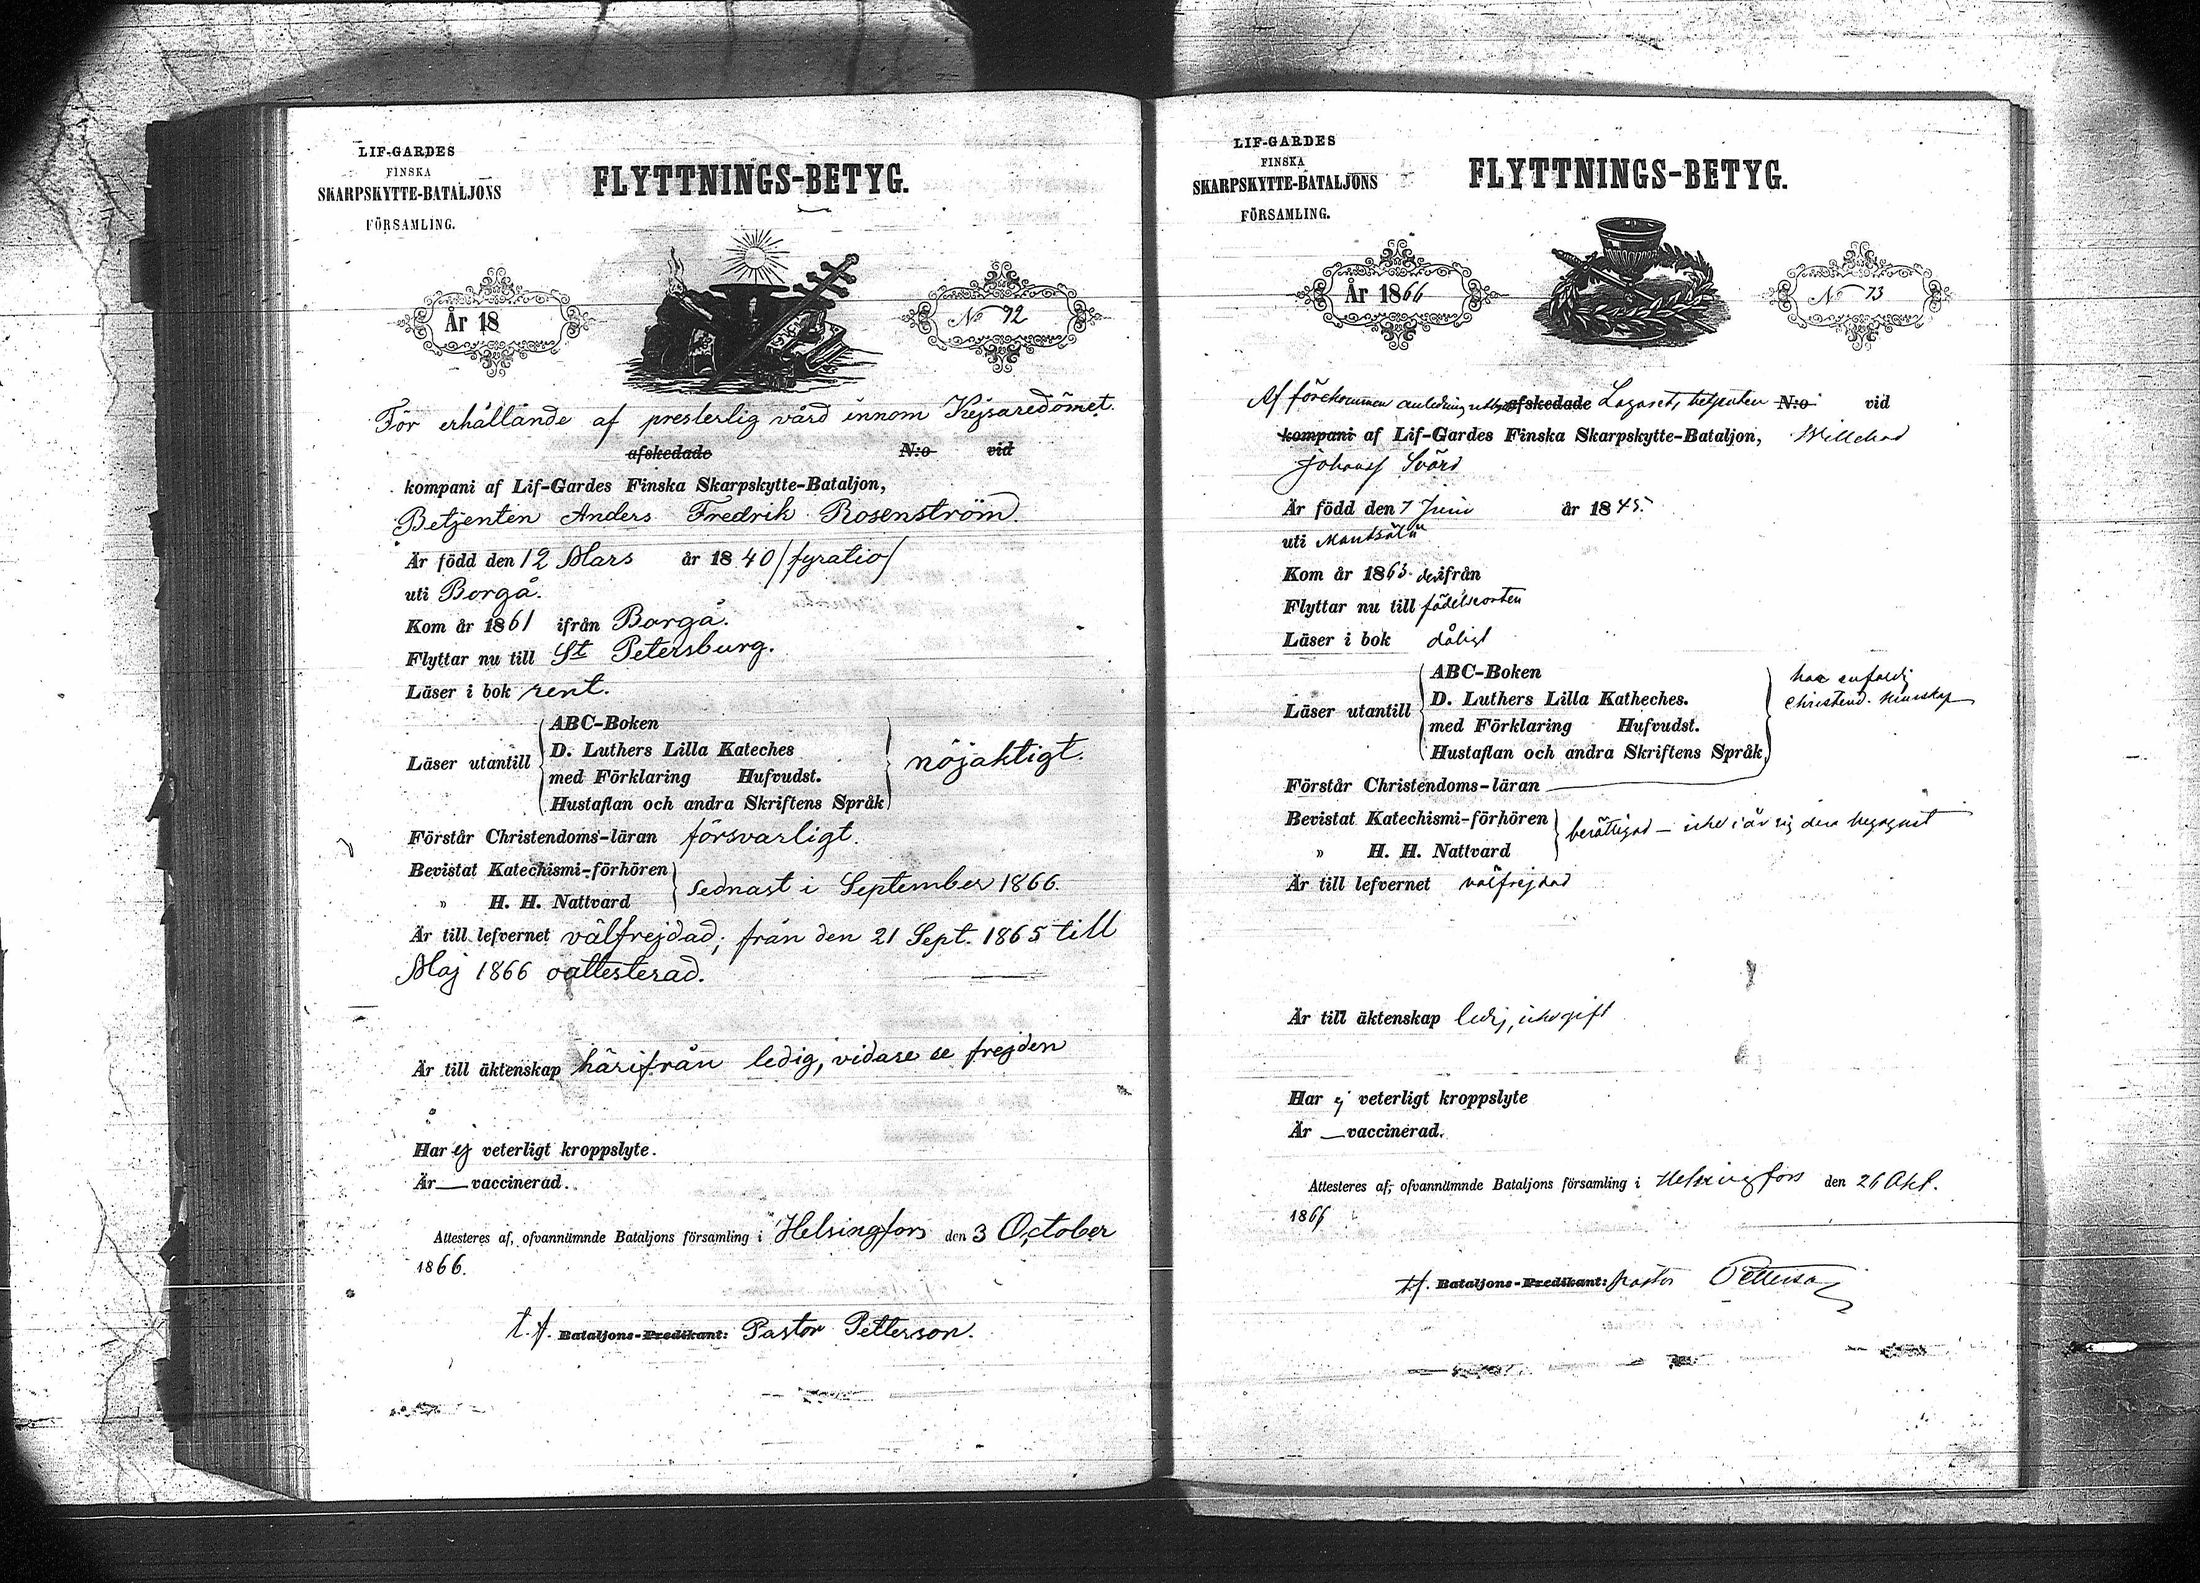 LIF-GARDES
FINSKA
SKARPSKYTTE-BATALJONS
FÖRSAMLING.
FLYTTNINGS-BETYG.
År 18
No 72
För erhållande af presterlig vård innom Kejsaredömet.
afskedade N:o vid
kompani af Lif-Gardes Finska Skarpskytte-Bataljon,
Betjenten Anders Fredrik Rosenström.
Är född den 12 Mars år 1840 /fyratio/
uti Borgå.
Kom år 1861 ifrån Borgå.
Flyttar nu till St Petersburg.
Läser i bok rent.
Läser utantill
ABC-Boken
D. Luthers Lilla Kateches
med Förklaring Hufvudst.
Hustaflan och andra Skriftens Språk
nöjaktigt.
Förstår Christendoms-läran försvarligt.
Bevistat Katechismi-förhören
" H. H. Nattvard
sednast i September 1866.
Är till lefvernet välfrejdad; från den 21 Sept. 1865 till
Maj 1866 oattesterad.
Är till äktenskap härifrån ledig, vidare se frejden
Har ej veterligt kroppslyte.
Är — vaccinerad.
Attesteres af, ofvannämnde Bataljons församling i Helsingfors den 3 October
1866.
t.f. Bataljons-Predikant: Pastor Petterson.
LIF-GARDES
FINSKA
SKARPSKYTTE-BATALJONS
FÖRSAMLING.
FLYTTNINGS-BETYG.
År 1866
No 73
Af förekommen anledning afskedade N:o vid
kompani af Lif-Gardes Finska Skarpskytte-Bataljon, Willehad
Johansf Svärd
Är född den 7 Juni år 1845.
uti Mäntsälä
Kom år 1863 derifrån
Flyttar nu till födelseorten
Läser i bok dåligt
Läser utantill
ABC-Boken
D. Luthers Lilla Katheches.
med Förklaring Hufvudst.
Hustaflan och andra Skriftens Språk
har enfaldig
christend. kunskap
Förstår Christendoms-läran
Bevistat Katechismi-förhören
" H. H. Nattvard
berättigad — icke i år sig dera begagnat
Är till lefvernet välfrejdad
Är till äktenskap ledig, icke gift
Har ej veterligt kroppslyte
Är — vaccinerad.
Attesteres af, ofvannämnde Bataljons församling i Helsingfors den 26 Okt.
1866
t.f. Bataljons-Predikant: Pastor Petterson